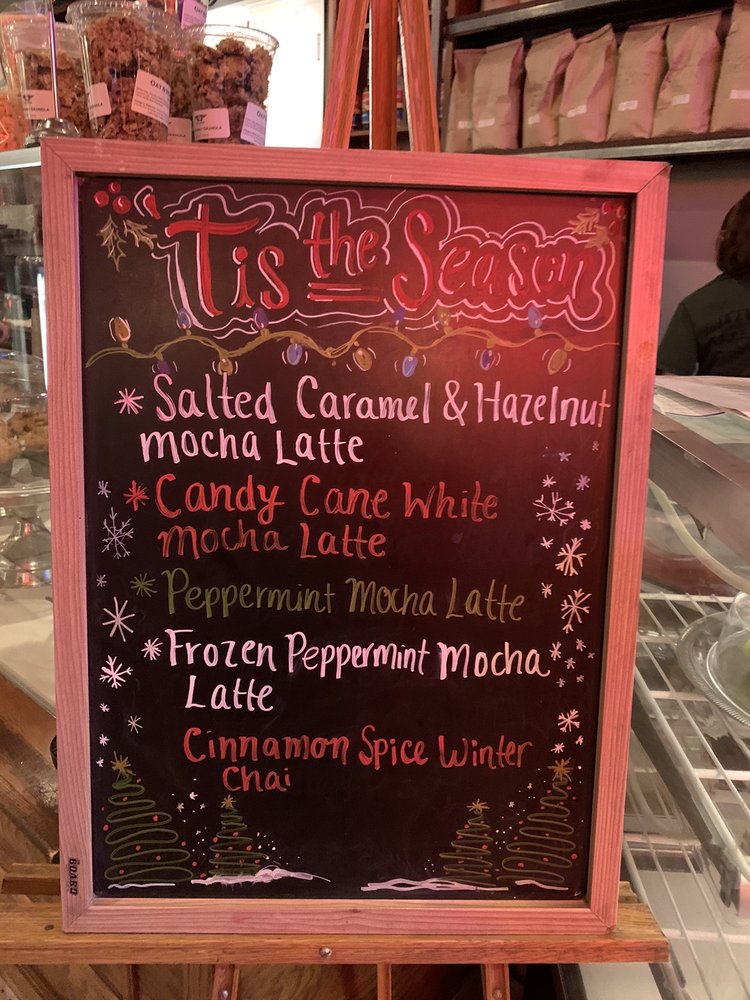 'Tis the Season
* Salted Caramel & Hazelnut
mocha Latte
* Candy Cane White
mocha Latte
* Peppermint Mocha Latte
* Frozen Peppermint Mocha
Latte
Cinnamon Spice Winter
Chai
BOARD